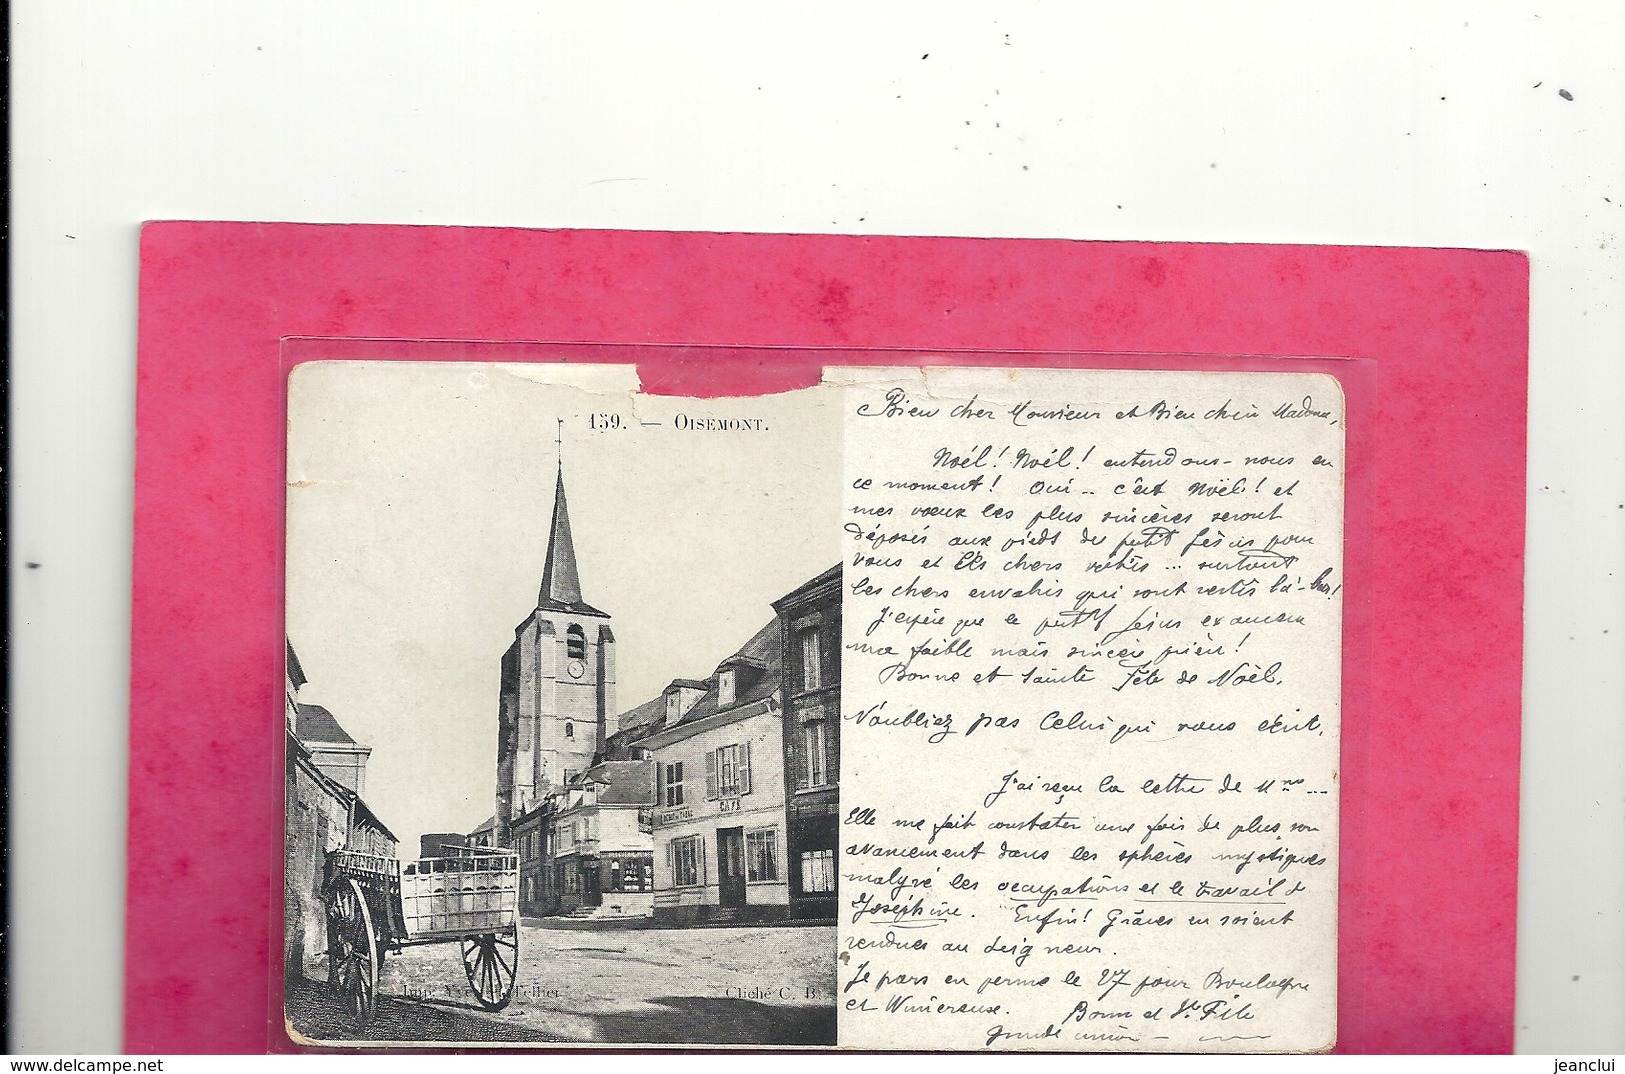 159. — OISEMONT.
CAFÉ
Cliché C. B.
Bien cher Monsieur et Bien chère Madame,
Noël! Noël! entendons-nous en
ce moment! Oui.. c'est Noël! et
mes voeux les plus sincères seront
déposés aux pieds du petit Jésus pour
vous et chers ... surtout
les chers envahis qui sont restés là-bas!
J'espère que le petit Jésus exaucera
ma faible mais sincère prière!
Bonne et Sainte Fête de Noël.
N'oubliez pas Celui qui vous écrit.
J'ai reçu la lettre de Mme ...
Elle me fait constater une fois de plus son
avancement dans les sphères mystiques
malgré les occupations et le travail de
Joséphine. Enfin! Grâces en soient
rendues au Seigneur.
Je pars en perme le 27 pour Boulogne
et Wimereux. Bonne et Ste Fête
Grande union —
jeanclui